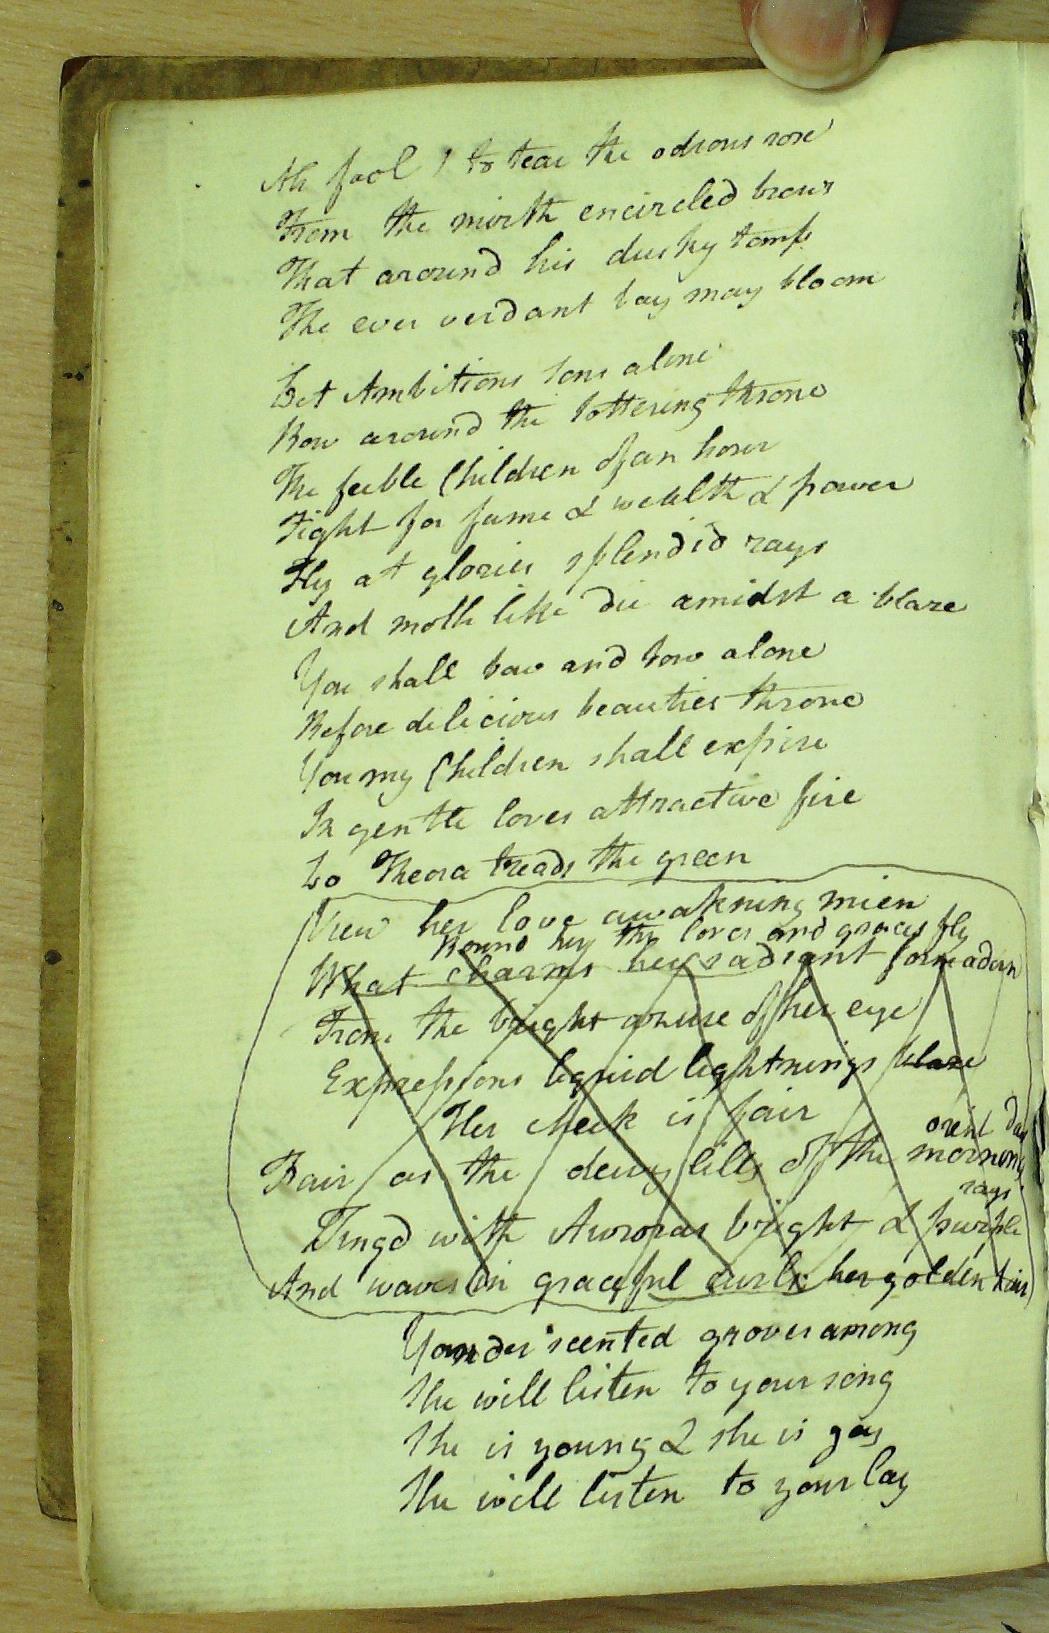 Ah fool ! to tear the odrous rose
From the mirth encircled brows
That around his dusky tomb
The ever verdant bay may bloom
Let Ambitions sons alone
Bow around the tottering throne
The feeble Children of an hour
Fight for fame & wealth & power
Fly at glories splendid rays
And moth like die amidst a blaze
You shall bow and bow alone
Before delicious beauties throne
You my Children shall expire
In gentle loves attractive fire
Lo Theora treads the green
View her love awakning mien
Round her the loves and graces fly
What charms her radiant form adorn
From the bright azure of her eye
Expressions liquid lightnings blaze
Her cheek is fair
orient Day
Fair as the dewy lilly of the morning
rays
Tingd with Auroras bright & purple
And waves in graceful curls her golden hair
Yonder scented groves among
She will listen to your song
She is young & she is gay
She will listen to your lay